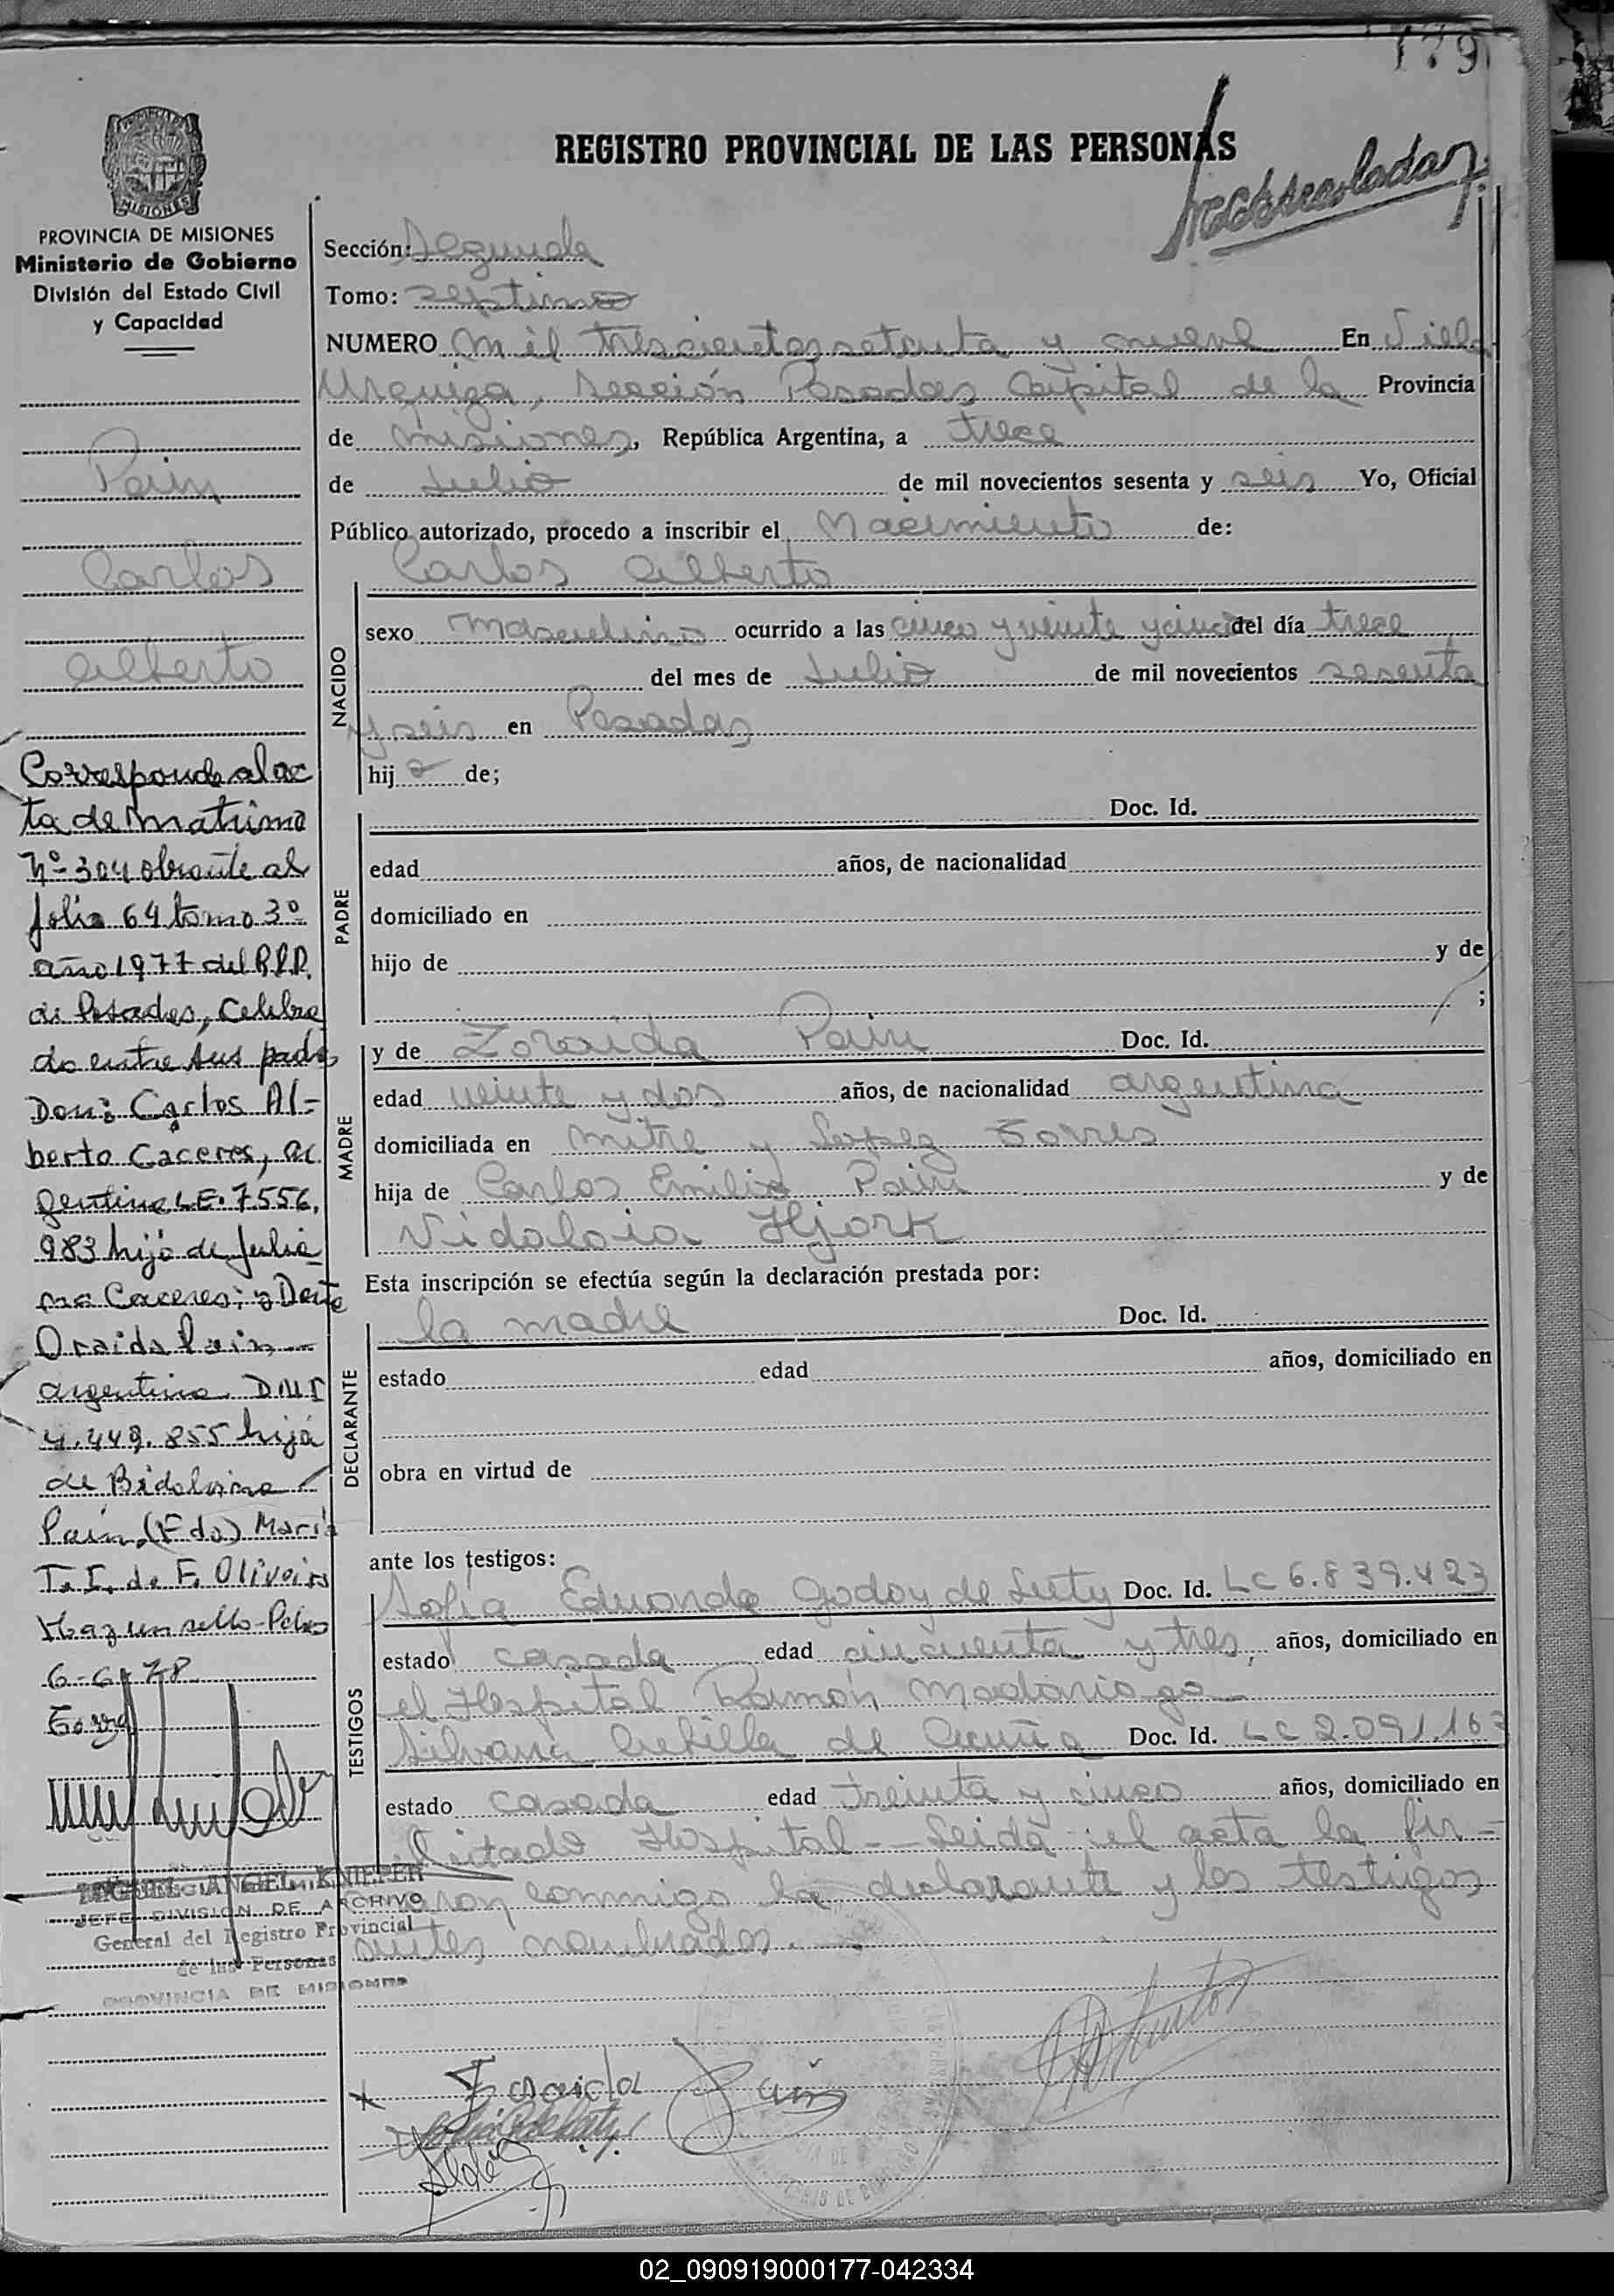 179
REGISTRO PROVINCIAL DE LAS PERSONAS
PROVINCIA DE MISIONES
Ministerio de Gobierno
División del Estado Civil
y Capacidad
Pain
Carlos
Alberto
Corresponde al ac
ta de matrimo
Nº 304 obrante al
folio 64 tomo 3º
año 1977 del R.P.P.
de Posadas, Celebra
do entre sus padres
Don: Carlos Al-
berto Caceres, ar
gentino L.E. 7.556.
983 hijo de Julia
na Caceres; y Doña
Oraida Pain
argentina D.N.I
4.449.855 hija
de Bidaloina
Pain, (Fdo) Maria
T. I. de F. Olivoira
Hay un sello-Pdas
6-6-78
MIGUEL ANGEL KNIEPER
JEFE DIVISION DE ARCHIVO
General del Registro Provincial
de las Personas
PROVINCIA DE MISIONES
Sección: Segunda
Tomo: septimo
NUMERO mil trescientos setenta y nueve En Villa
Urquiza, sección Posadas Capital de la Provincia
de misiones, República Argentina, a trece
de Julio de mil novecientos sesenta y seis Yo, Oficial
Público autorizado, procedo a inscribir el Nacimiento de:
Carlos Alberto
NACIDO
sexo masculino ocurrido a las cinco y veinte y cinco del día trece
del mes de Julio de mil novecientos sesenta
y seis en Posadas
hijo de;
PADRE
Doc. Id.
edad años, de nacionalidad
domiciliado en
hijo de y de
;
MADRE
y de Zoraida Pain Doc. Id.
edad veinte y dos años, de nacionalidad argentina
domiciliada en mitre y Lopez Torres
hija de Carlos Emilio Pain y de
Vidaloia Hjork
Esta inscripción se efectúa según la declaración prestada por:
DECLARANTE
la madre Doc. Id.
estado edad años, domiciliado en
obra en virtud de
ante los testigos:
TESTIGOS
Sofia Edmonda Godoy de Luty Doc. Id. LC 6.839.423
estado casada edad cincuenta y tres, años, domiciliado en
el Hospital Ramón Madariaga
Silvana de Acuña Doc. Id. LC 2.091.163
estado casada edad treinta y cinco años, domiciliado en
Citado Hospital - Leida el acta la fir-
maron conmigo la declarante y los testigos
antes nombrados.
Zoraida Pain
02_090919000177-042334